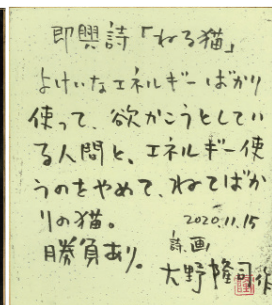 即興詩「ねる猫」
よけいなエネルギーばかり
使って、欲かこうとしてい
る人間と、エネルギー使
うのをやめて、ねてばか
りの猫。
2020.11.15
勝負あり。
詩.画
大野隆司作